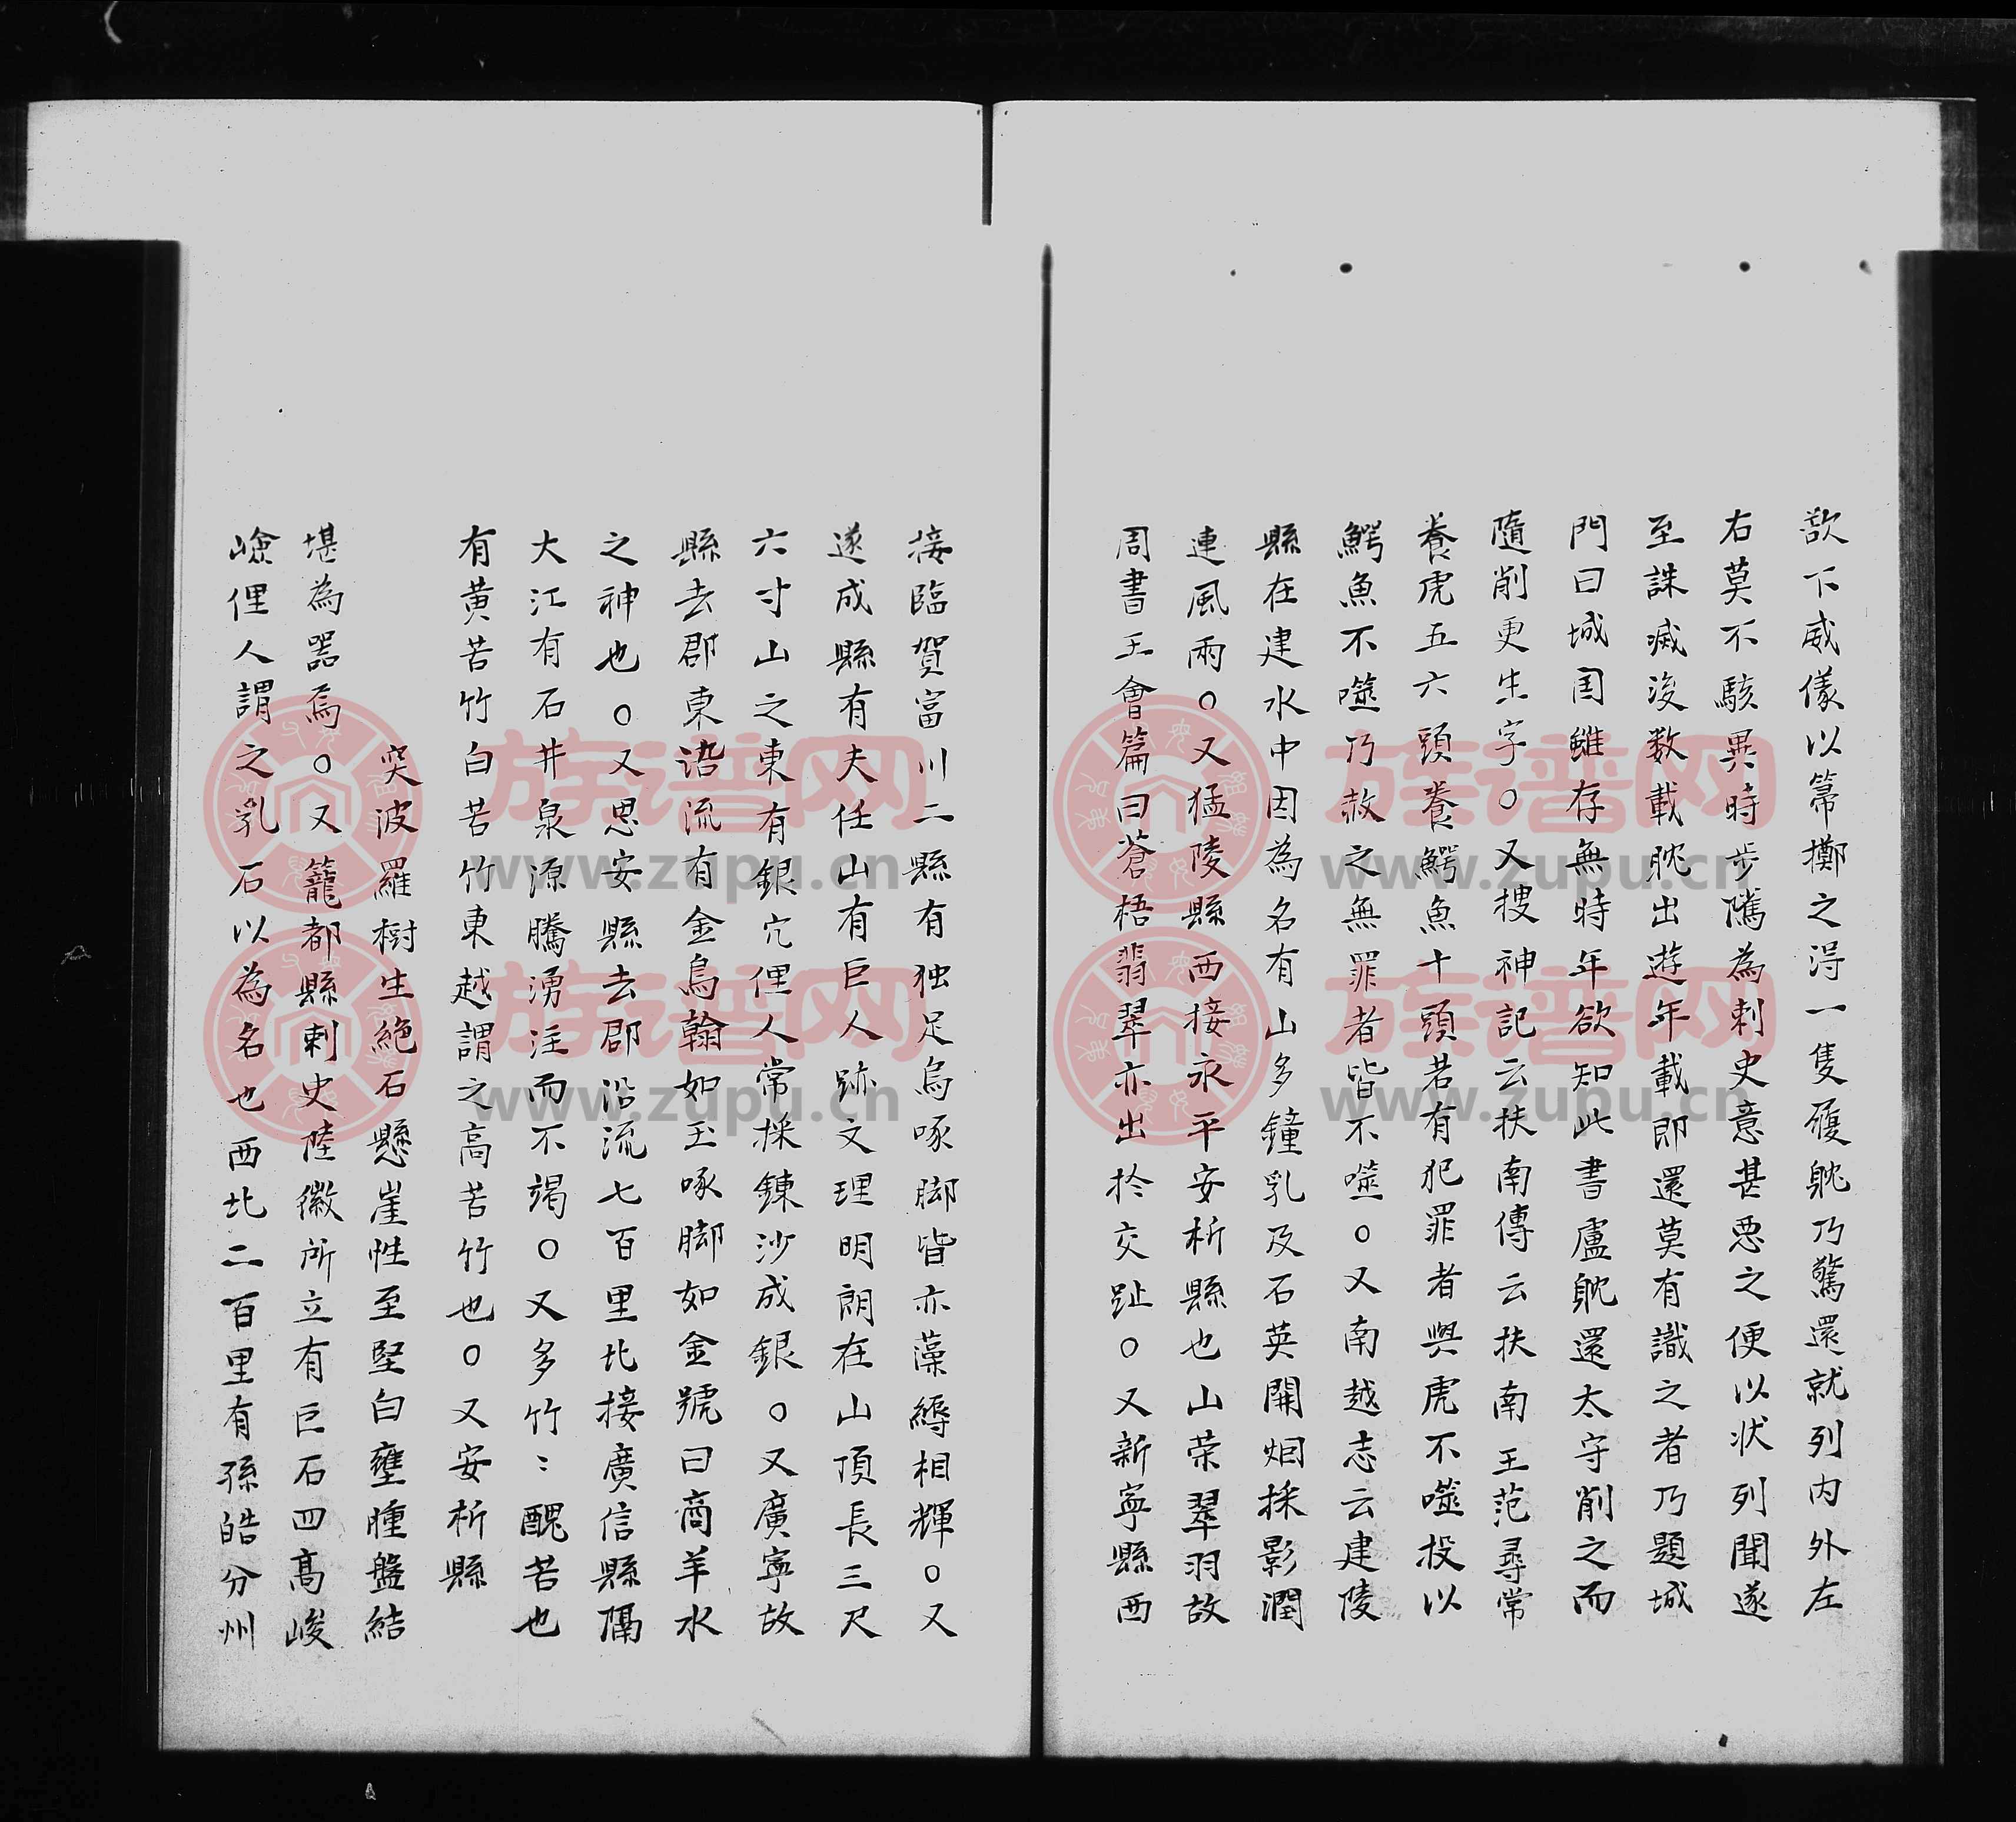 歘下威儀以箒擲之淂一隻履躭乃驚還就列内外左
右莫不駭異時步隲為刺史意甚悪之便以状列聞遂
至誅㓕後数載躭出遊年載即還莫有識之者乃題城
門曰城国雖存無時年欲知此書盧躭還太守削之而
隨削更生字○又搜神記云扶南傳云扶南王范尋常
養虎五六頭養鰐魚十頭若有犯罪者與虎不噬投以
鰐魚不噬乃赦之無罪者皆不噬○又南越志云建陵
縣在建水中因為名有山多鐘乳及石英開烟採影潤
連風雨○又猛陵縣西接永平安析縣也山荣翠羽故
周書王會篇曰蒼梧翡翠亦出扵交趾○又新寧縣西
接臨賀富川二縣有独足鳥啄脚皆亦藻縟相輝○又
遂成縣有夫任山有巨人跡文理明朗在山頂長三尺
六寸山之東有銀穴俚人常採鍊沙成銀○又廣寧故
縣去郡東沿流有金鳥翰如玉啄脚如金號曰商羊水
之神也○又思安縣去郡沿流七百里北接廣信縣隔
大江有石井泉源騰湧注而不竭○又多竹〻醜苦也
有黄苦竹白苦竹東越謂之高苦竹也○又安析縣
突波羅樹生絶石懸崖性至堅白壅腫盤結
堪為噐焉○又籠都縣刺史陸徽所立有巨石四高峻
嶮俚人謂之乳石以為名也西北二百里有孫皓分州
族谱网
www.zupu.cn
族谱网
www.zupu.cn
族谱网
www.zupu.cn
族谱网
www.zupu.cn